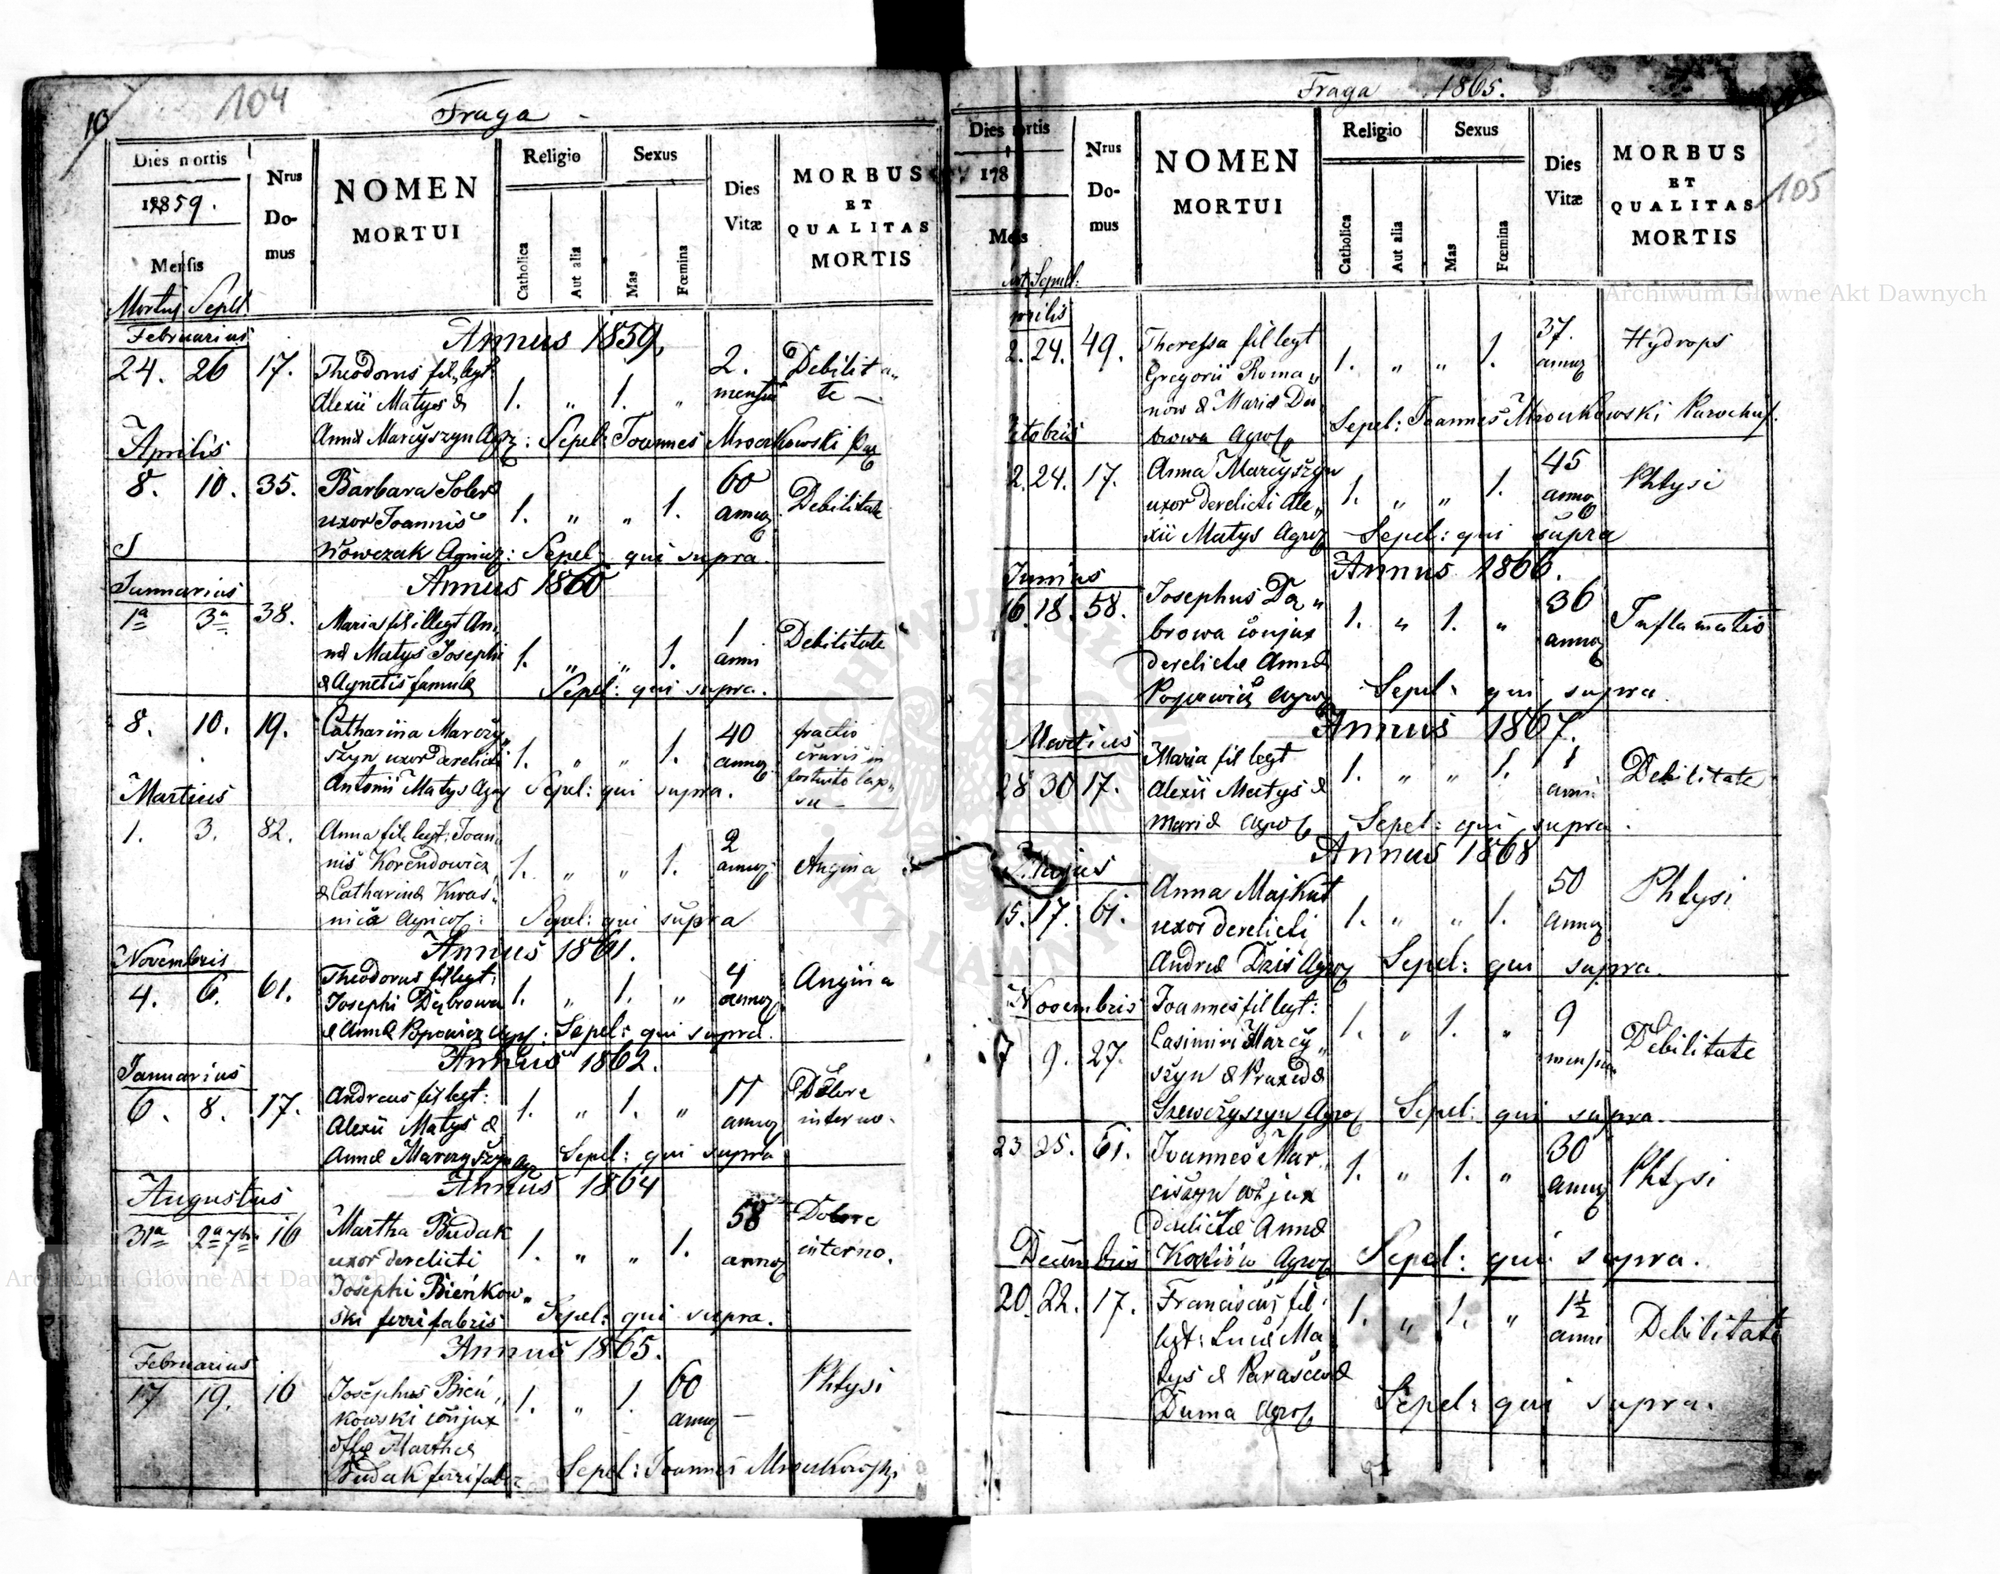 104
Fraga
Dies mortis
1859.
Mensis
Nrus Domus
NOMEN MORTUI
Religio
Catholica
Aut alia
Sexus
Mas
Fœmina
Dies Vitæ
MORBUS ET QUALITAS MORTIS
Mortus Sepul
Annus 1859
Februarius
24. 26 17. Theodorus fil. legt. 1. „ 1. „ 2. mensiu Debilita„te
Alexii Matys &
Annæ Marcyszyn Agr: Sepel: Joannes Mroczkowski Par
Aprilis
8. 10. 35. Barbara Soler 1. „ „ 1. 60 annoz Debilitate
uxor Joannis
Nowczak Agricoz: Sepel: qui supra.
Annus 1860
Januarius
1a 3a 38. Maria fil illegt An„ 1. „ „ 1. 1 anni Debilitate
næ Matys Josephi
& Agnetis famulæ Sepel: qui supra.
8. 10. 19. Catharina Marczy„ 1. „ „ 1. 40 annoz fractio cruris in fortuito lap„su
szyn uxor derelicti
Antonii Matys Agr Sepel: qui supra.
Martius
1. 3. 82. Anna fil. legt: Joan„ 1. „ „ 1. 2 annoz Angina
nis Korendowicz
& Catharinæ Kwas„
nica Agricol: Sepel: qui supra
Annus 1861.
Novembris
4. 6. 61. Theodorus fil legt: 1. „ 1. „ 4 annoz Angina
Josephi Dąbrowa
& Annæ Popowicz Agr: Sepel: qui supra.
Annus 1862.
Januarius
6. 8. 17. Andreas fil legt: 1. „ 1. „ 11 annoz Dolore interno.
Alexii Matys &
Annæ Marczyszyn Agr Sepel: qui supra
Annus 1864
Augustus
31a 2a 7bris 16 Martha Budak 1. „ „ 1. 58 annoz Dolore interno.
uxor derelicti
Josephi Bieńkow„
ski ferri fabris Sepel: qui supra.
Annus 1865.
Februarius
17 19. 16 Josephus Bień„ 1. „ 1. 60 annoz — Phtysi
kowski conjux
Marthæ
Budak ferrifaber Sepel: Joannes Mroczkowski
Fraga 1865.
105
Dies mortis
178
Mensis
Nrus Domus
NOMEN MORTUI
Religio
Catholica
Aut alia
Sexus
Mas
Fœmina
Dies Vitæ
MORBUS ET QUALITAS MORTIS
Sepul:
prilis
2. 24. 49. Theressa fil legt 1. „ „ 1. 37. annoz Hydrops
Gregorii Roma„
now & Mariæ Du„
browa Agrol Sepel: Joannes Mroczkowski Parochus.
ctobris
2. 24. 17. Anna Marcyszyn 1. „ „ 1. 45 annoz Phtysi
uxor derelicti Ale„
xii Matys Agroz Sepel: qui supra
Annus 1866.
Junius
16. 18. 58. Josephus Dą„ 1. „ 1. „ 36 annoz Inflamatio
browa conjux
derelictæ Annæ
Popowicz Agroz Sepel: qui supra.
Annus 1867.
Martius
28 30 17. Maria fil legt 1. „ „ 1. 1 anni Debilitate
Alexii Matys &
Mariæ Agrol Sepel: qui supra.
Annus 1868
Majus
15. 17. 61. Anna Majkut 1. „ „ 1. 50 annoz Phtysi
uxor derelicti
Andreæ Dzis Agroz Sepel: qui supra.
Novembris
7 9. 27. Joannes fil legt: 1. „ 1. „ 9 mensiu Debilitate
Casimiri Marcy„
szyn & Praxedæ
Szewczyszyn Agrol Sepel: qui supra.
23 25. 61. Joannes Mar„ 1. „ 1. „ 30 annoz Phtysi
ciszyn conjux
derelictæ Annæ
Kostiów Agroz Sepel: qui supra.
Decembris
20. 22. 17. Franciscus fil: 1. „ 1. „ 1½ anni Debilitate
legt: Lucæ Ma„
tys & Parascevæ
Duma Agrol Sepel: qui supra.
Archiwum Główne Akt Dawnych
Archiwum Główne Akt Dawnych